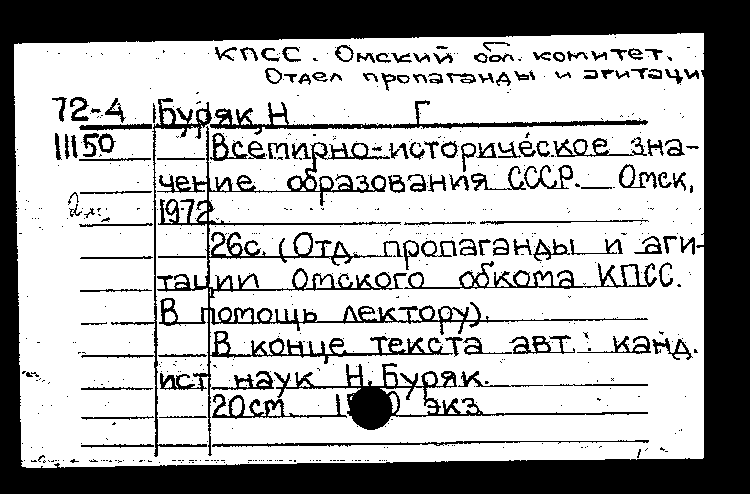 КПСС. Омский обл. комитет.
Отдел пропаганды и агитации
72-4 Буряк, Н Г
11150 Всемирно-историческое зна-
чение образования СССР. Омск,
1972.
26с. (Отд. пропаганды и аги-
тации Омского обкома КПСС.
В помощь лектору).
В конце текста авт.: канд.
ист наук Н. Буряк.
20см. экз